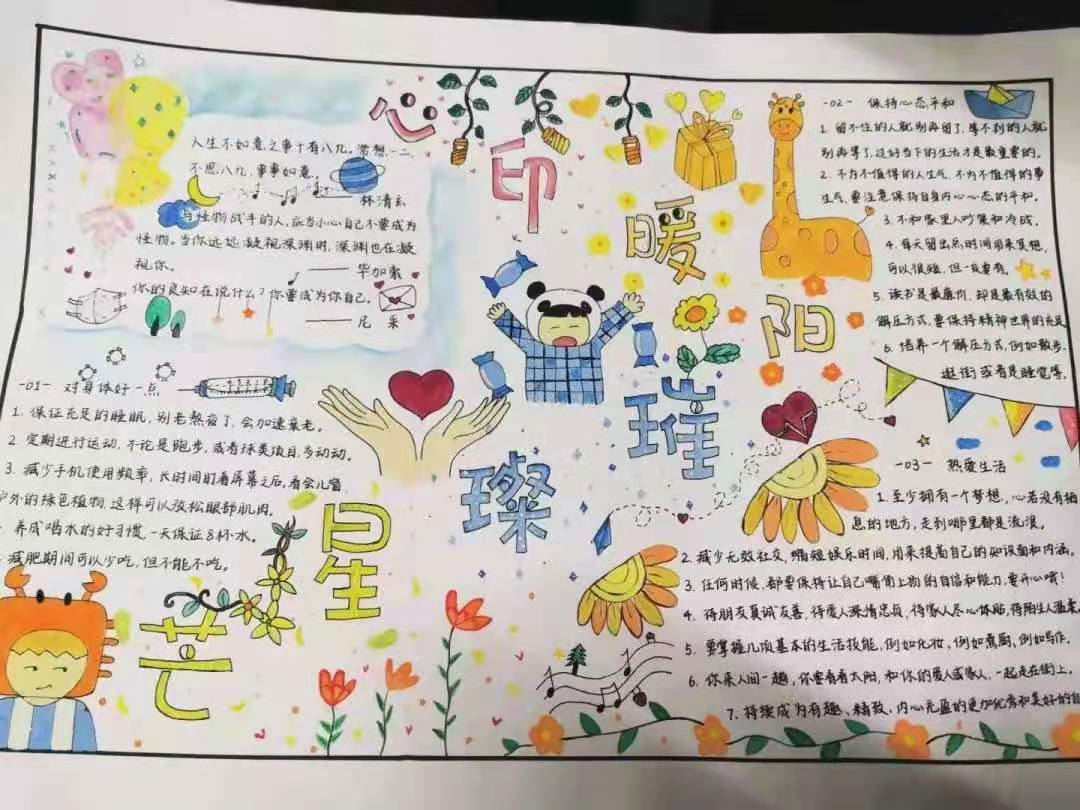 心印暖阳
璀璨星芒
人生不如意之事十有八九。常想一二,
不思八九,事事如意。
——林清玄
与怪物战斗的人,应当小心自己不要成为
怪物。当你远远凝视深渊时,深渊也在凝
视你。
——毕加索
你的良知在说什么?你要成为你自己。
——尼采
-01- 对身体好一点
1. 保证充足的睡眠,别老熬夜了,会加速衰老。
2. 定期进行运动,不论是跑步,或者球类项目,多动动。
3. 减少手机使用频率,长时间盯着屏幕之后,看会儿窗
户外的绿色植物,这样可以放松眼部肌肉。
养成喝水的好习惯,一天保证8杯水。
减肥期间可以少吃,但不能不吃。
-02- 保持心态平和
1. 留不住的人就别再留了,等不到的人就
别再等了,过好当下的生活才是最重要的。
2. 不为不值得的人生气,不为不值得的事
生气,要注意保持自身内心心态的平和。
3. 不和家里人吵架和冷战。
4. 每天留出点时间用来冥想,
可以很短,但一定要有。
5. 读书是最廉价,却是最有效的
解压方式,要保持精神世界的充足
6. 培养一个解压方式,例如散步、
逛街或者是睡觉等。
-03- 热爱生活
1. 至少拥有一个梦想,心若没有栖
息的地方,走到哪里都是流浪。
2. 减少无效社交,缩短娱乐时间,用来提高自己的知识面和内涵。
3. 任何时候,都要保持让自己嘴角上扬的自信和能力,要开心哦!
4. 待朋友真诚友善,待爱人深情忠贞,待家人尽心体贴,待陌生人温柔
5. 要掌握几项基本的生活技能,例如化妆、例如煮厨、例如写作。
6. 你来人间一趟,你要看看太阳,和你的爱人或家人,一起走在街上。
7. 持续成为有趣、精致、内心充盈的更加优秀和美好的自